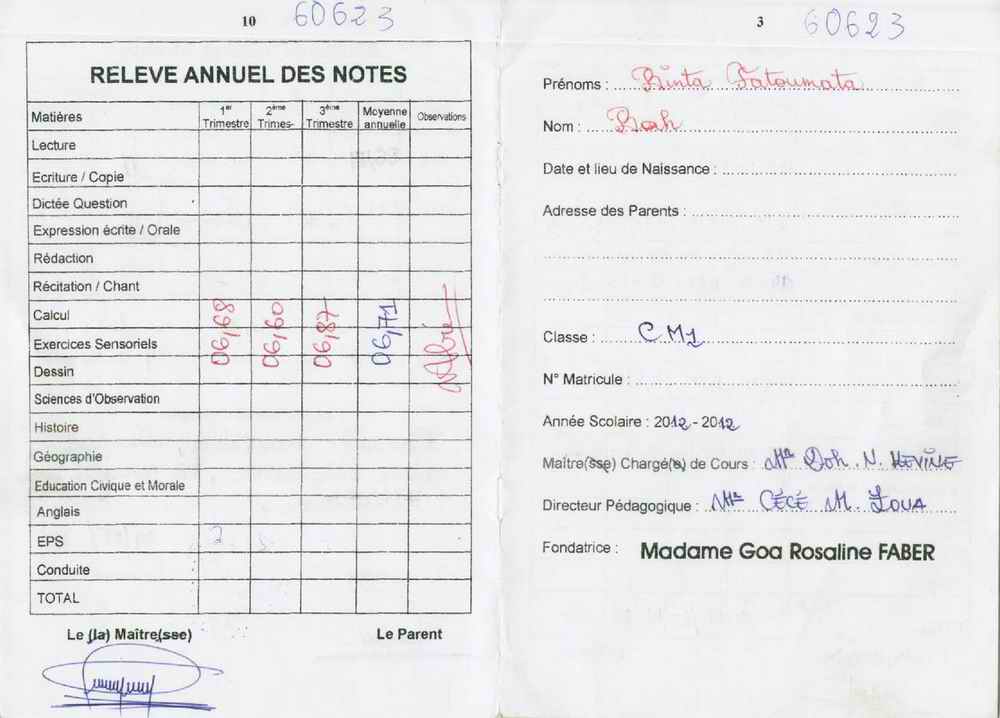 10 60623
RELEVE ANNUEL DES NOTES
Matières 1er Trimestre 2ème Trimes- 3ème Trimestre Moyenne annuelle Observations
Lecture
Ecriture / Copie
Dictée Question
Expression écrite / Orale
Rédaction
Récitation / Chant
Calcul
Exercices Sensoriels 06,68 06,60 06,87 06,71
Dessin
Sciences d'Observation
Histoire
Géographie
Education Civique et Morale
Anglais
EPS
Conduite
TOTAL
Le (la) Maître(sse) Le Parent
3 60623
Prénoms : Binta Fatoumata
Nom : Bah
Date et lieu de Naissance :
Adresse des Parents :
Classe : CM1
N° Matricule :
Année Scolaire : 2012 - 2012
Maître(sse) Chargé(e) de Cours : Mr Doh. N. KEVINE
Directeur Pédagogique : Mr CÉCÉ M. LOUA
Fondatrice : Madame Goa Rosaline FABER